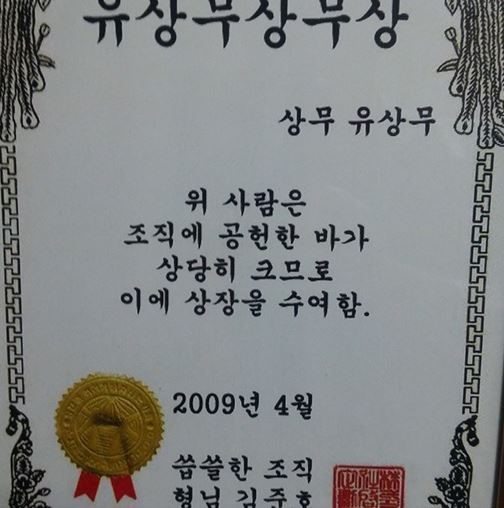 유상무상무상
상무 유상무
위 사람은
조직에 공헌한 바가
상당히 크므로
이에 상장을 수여함.
2009년 4월
씁쓸한 조직
형님 김준호